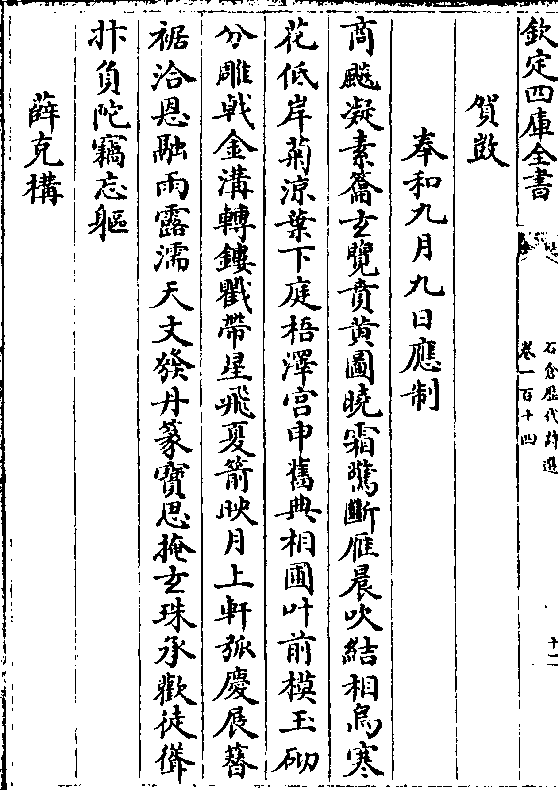 欽定四庫全書
石倉歷代詩選
卷一百十四
十二
賀敱
奉和九月九日應制
商飈凝素籥玄覽賁黄圖曉霜驚斷雁晨吹結相烏寒
花低岸菊涼葉下庭梧澤宫申舊典相圃叶前模玉砌
分雕戟金溝轉鏤衢帶星飛夏箭映月上軒弧慶展簪
裾洽恩融雨露濡天文發丹篆寳思掩玄珠承歡徒聳
抃負陀竊忘軀
薛克構